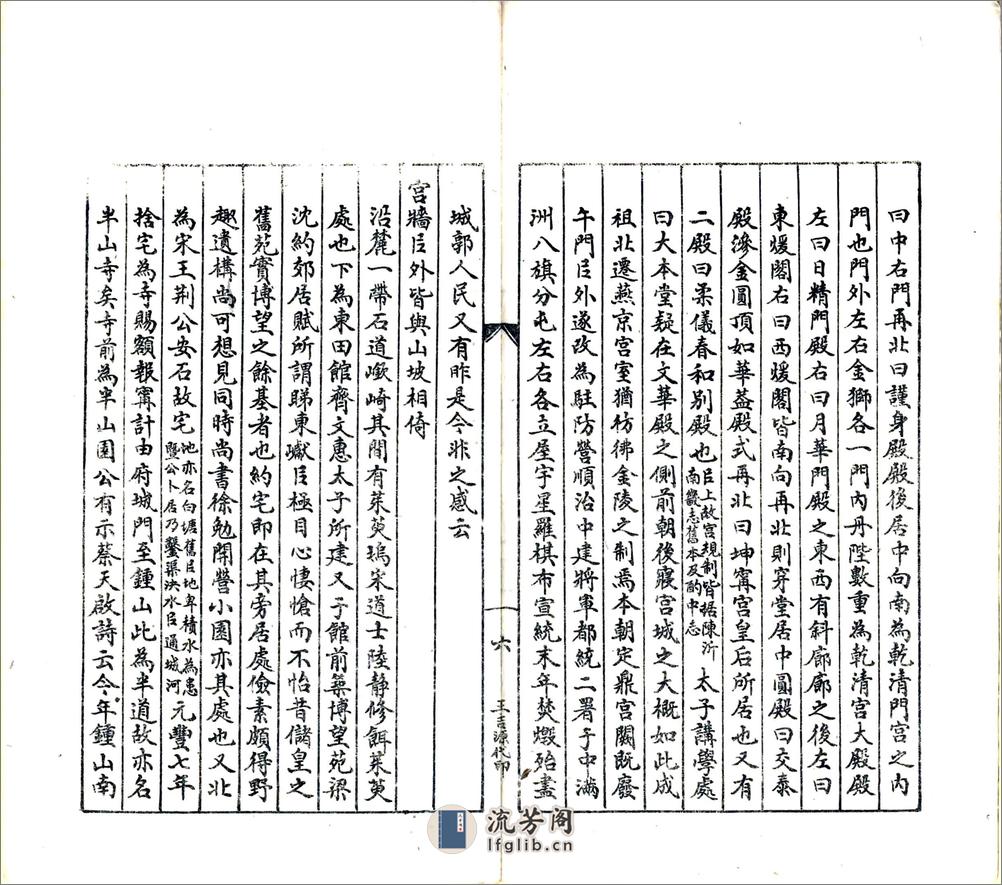 曰中右門再北曰謹身殿殿後居中向南為乾清門宫之内
門也門外左右金獅各一門内丹陛數重為乾清宫大殿殿
左曰日精門殿右曰月華門殿之東西有斜廊廊之後左曰
東煖閣右曰西煖閣皆南向再北則穿堂居中圓殿曰交泰
殿滲金圓頂如華葢殿式再北曰坤寗宫皇后所居也又有
二殿曰柔儀春和别殿也㠯上故宫規制皆据陳沂南畿志舊本及酌中志太子講學處
曰大本堂疑在文華殿之側前朝後寢宫城之大概如此成
祖北遷燕京宫室猶彷彿金陵之制焉本朝定鼎宫闕既廢
午門㠯外遂改為駐防營順治中建將軍都統二署于中滿
洲八旗分屯左右各立屋宇星羅棋布宣統末年焚燬殆盡
城郭人民又有昨是今非之感云
宫牆㠯外皆與山坡相倚
沿麓一帶石道嶔崎其間有茱萸塢宋道士陸静修餌茱萸
處也下為東田館齊文惠太子所建又于館前築博望苑梁
沈約郊居賦所謂睇東巘㠯極目心悽愴而不怡昔儲皇之
舊苑實博望之餘基者也約宅即在其旁居處儉素頗得野
趣遺構尚可想見同時尚書徐勉開營小園亦其處也又北
為宋王荆公安石故宅池亦名白塘舊㠯地卑積水為患暨公卜居乃鑿渠决水㠯通城河元豐七年
捨宅為寺賜額報寗計由府城門至鍾山此為半道故亦名
半山寺矣寺前為半山園公有示蔡天啟詩云今年鍾山南
六
王吉源代印
流芳阁
lfglib.cn